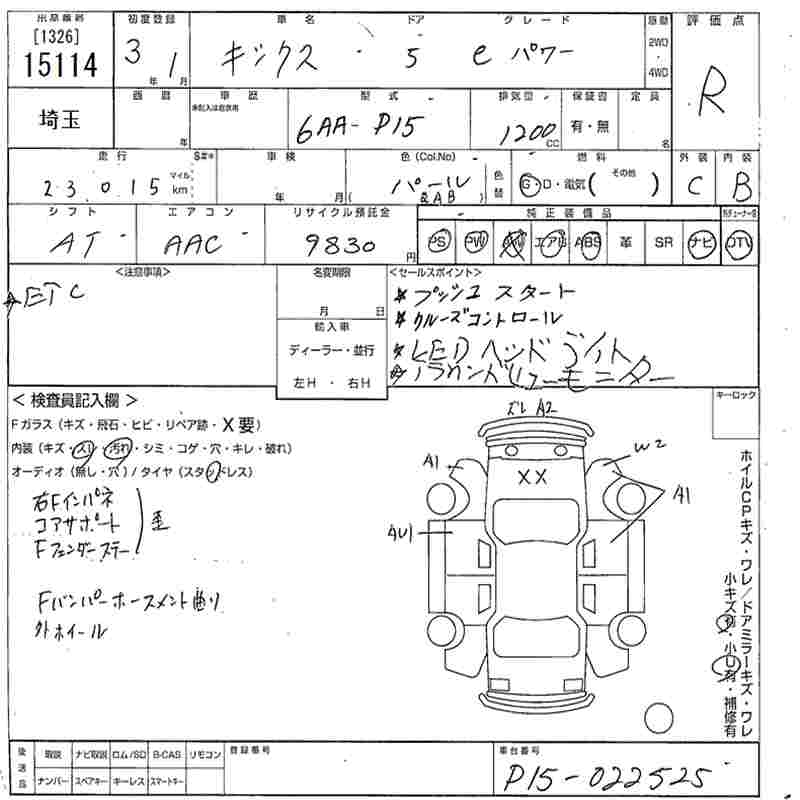 出品番号 初度登録 車名 ドア グレード 駆動 評価点
[1326]
15114
3年 1月 キックス 5 e パワー 2WD・4WD R
埼玉 西暦 年 車歴 未記入は自家用 型式 排気量 保証書 定員
6AA-P15 1200cc 有・無 名
走行 車検 色(Col.No) 色替 燃料 外装 内装
23,015 マイル km 年 月 パール (QAB) G・D・電気( その他 ) C B
シフト エアコン リサイクル預託金 純正装備品
AT AAC 9830円 PS PW AW エアB ABS 革 SR ナビ DTV
<注意事項> 名変期限 <セールスポイント>
ETC
月 日
輸入車
ディーラー・並行
左H・右H
プッシュスタート
クルーズコントロール
LEDヘッドライト
アラウンドビューモニター
キーロック
<検査員記入欄>
Fガラス(キズ・飛石・ヒビ・リペア跡・X要)
内装(キズ・スレ・汚れ・シミ・コゲ・穴・キレ・破れ)
オーディオ(無し・穴)/タイヤ(スタッドレス)
右Fインパネ
コアサポート 歪
Fフェンダーステー
Fバンパーホースメント曲り
外ホイール
ズレ A2
XX
W2
A1
A1
AU1
ホイルCPキズ・ワレ/ドアミラーキズ・ワレ
小キズ有・小U有・補修有
後送品 取説 ナビ取説 ロム/SD B-CAS リモコン 登録番号 車台番号
ナンバー スペアキー キーレス スマートキー
P15-022525